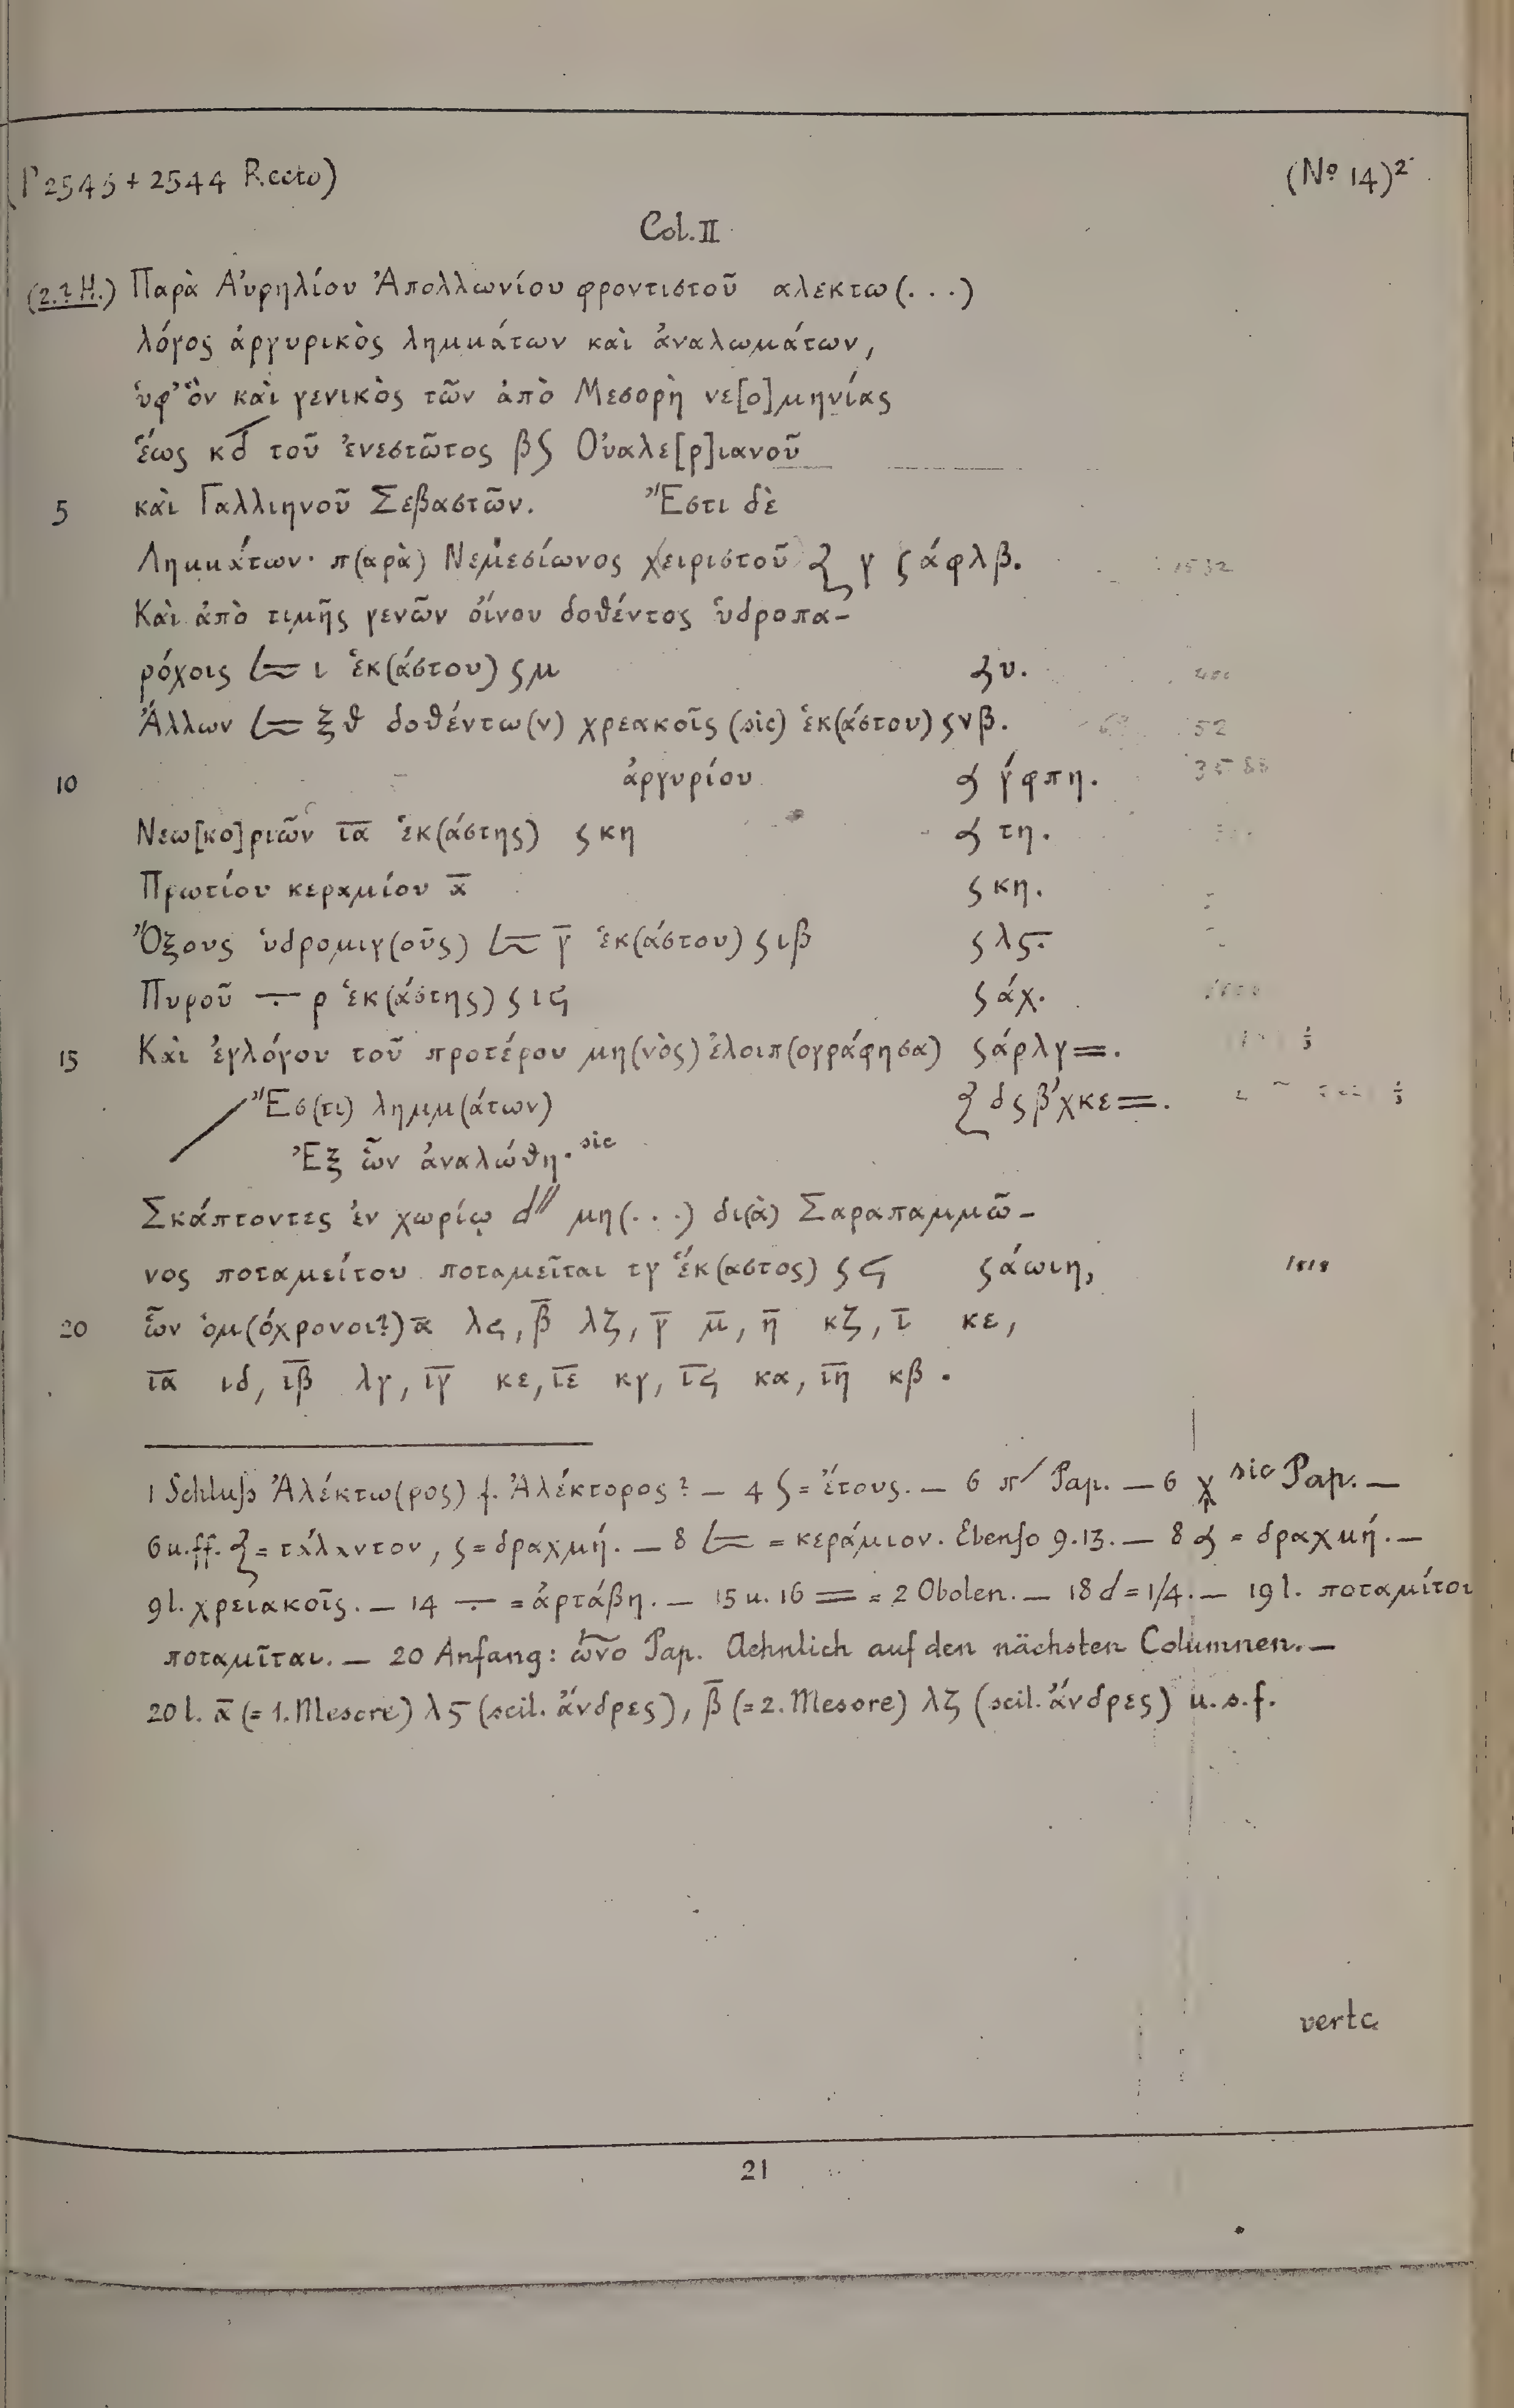 (P 2545 + 2544 Recto) (No 14)2
Col. II
(2.? H.) Παρὰ Αὐρηλίου Ἀπολλωνίου φροντιστοῦ αλεκτω(...)
λόγος ἀργυρικὸς λημμάτων καὶ ἀναλωμάτων,
ὑφ' ὃν καὶ γενικὸς τῶν ἀπὸ Μεσορὴ νε[ο]μηνίας
ἕως κδ τοῦ ἐνεστῶτος βς Οὐαλε[ρ]ιανοῦ
5 καὶ Γαλλιηνοῦ Σεβαστῶν. Ἔστι δὲ
Λημμάτων· π(αρὰ) Νεμεσίωνος χειριστοῦ ⟠ γ ς άφλβ. 1532
Καὶ ἀπὸ τιμῆς γενῶν οἴνου δοθέντος ὑδροπα-
ρόχοις 𐅼 ι ἑκ(άστου) ς μ ς υ. 400
Ἄλλων 𐅼 ξθ δοθέντω(ν) χρεακοῖς (sic) ἑκ(άστου) ς νβ. 52
10 ἀργυρίου ς γ́φπη. 3588
Νεω[κο]ριῶν ι̅α̅ ἑκ(άστης) ς κη ς τη.
Πρωτίου κεραμίου α̅ ς κη.
Ὄξους ὑδρομιγ(οῦς) 𐅼 γ̅ ἑκ(άστου) ς ιβ ς λϛ.
Πυροῦ ÷ ρ ἑκ(άστης) ς ιϛ ς άχ.
15 Καὶ ἐγλόγου τοῦ προτέρου μη(νὸς) ἐλοιπ(ογράφησα) ς άρλγ=.
Ἔσ(τι) λημμ(άτων) ⟠ δ ς β́χκε=.
Ἐξ ὧν ἀναλώθη· sic
Σκάπτοντες ἐν χωρίῳ d″ μη(...) δι(ὰ) Σαραπαμμῶ-
νος ποταμείτου ποταμεῖται τγ ἕκ(αστος) ς ϛ ς άωιη, 1818
20 ὧν ὁμ(όχρονοι?) α̅ λϛ, β̅ λζ, γ̅ μ̅, η̅ κζ, ι̅ κε,
ι̅α̅ ιδ, ι̅β̅ λγ, ι̅γ̅ κε, ι̅ε̅ κγ, ι̅ϛ̅ κα, ι̅η̅ κβ.
1 Schluſs Ἀλέκτω(ρος) f. Ἀλέκτορος? — 4 ς = ἔτους. — 6 π/ Pap. — 6 χ sic Pap. —
6 u. ff. ⟠ = τάλαντον, ς = δραχμή. — 8 𐅼 = κεράμιον. Ebenſo 9. 13. — 8 ς = δραχμή. —
9 l. χρειακοῖς. — 14 ÷ = ἀρτάβη. — 15 u. 16 = = 2 Obolen. — 18 d = 1/4. — 19 l. ποταμίτου
ποταμῖται. — 20 Anfang: ὧνο Pap. Aehnlich auf den nächsten Columnen. —
20 l. α̅ (= 1. Mesore) λϛ (scil. ἄνδρες), β̅ (= 2. Mesore) λζ (scil. ἄνδρες) u. s. f.
verte
21